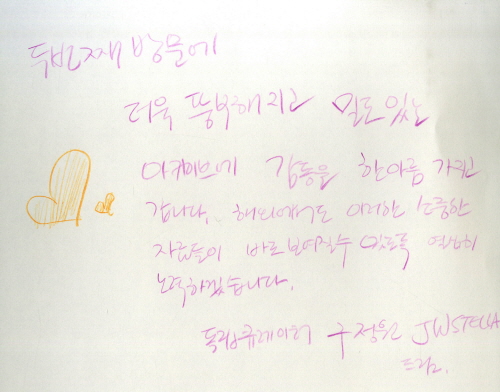 두번째 방문에
더욱 풍부해지고 밀도있는
아카이브에 감동을 한아름 가지고
갑니다. 해외에서도 이러한 소중한
자료들이 바로 보여질수 있도록 열심히
노력하겠습니다.
독립큐레이터 구정원 JWSTELLA
드림.